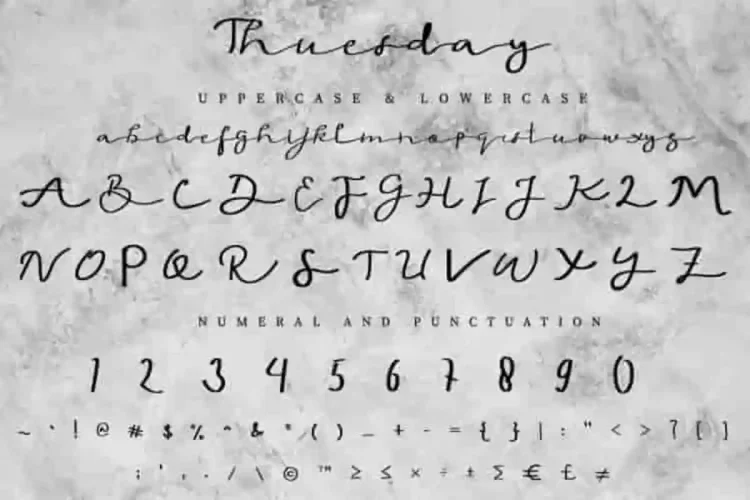 Thuesday
UPPERCASE & LOWERCASE
abcdefghijklmnopqrstuvwxyz
ABCDEFGHIJKLM
NOPQRSTUVWXYZ
NUMERAL AND PUNCTUATION
1 2 3 4 5 6 7 8 9 0
~ ` ! @ # $ % ^ & * ( ) _ + - = { } | : " < > ? [ ]
; ' , . / \ © ™ ≥ ≤ × ÷ ± Σ € £ ≠